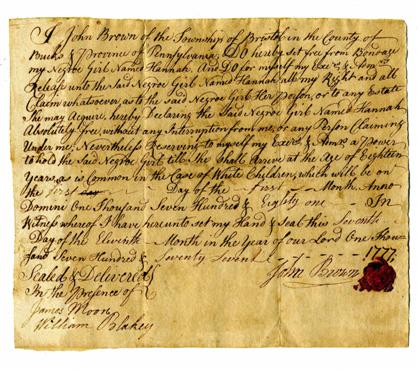 I John Brown of the Township of Bristol in the County of
Bucks & Province of Pennsylvania, DO hereby set free from Bondage
my Negroe Girl Named Hannah, And DO for myself my Exers & Admrs
Release unto the said Negroe Girl Named Hannah all my Right and all
Claim whatsoever, as to the said Negroe Girl Her Person, or to any Estate
She may Acquire, hereby Declaring the Said Negroe Girl Named Hannah
Absolutely free, without any Interruption from me, or any Person Claiming
Under me, Nevertheless Reserving to myself my Exers & Admrs a Power
to hold the Said Negroe Girl till She Shall Arrive at the Age of Eighteen
Years, as is Common in the Case of White Children, which will be on
the first Day of the first Month Anno
Domini One Thousand Seven Hundred & Eighty one — In
Witness whereof I have hereunto set my Hand & Seal this Seventh
Day of the Eleventh Month in the Year of our Lord One Thou-
sand Seven Hundred & Seventy Seven 1777
Sealed & Delivered John Brown
In the Presence of
James Moon
William Blakey